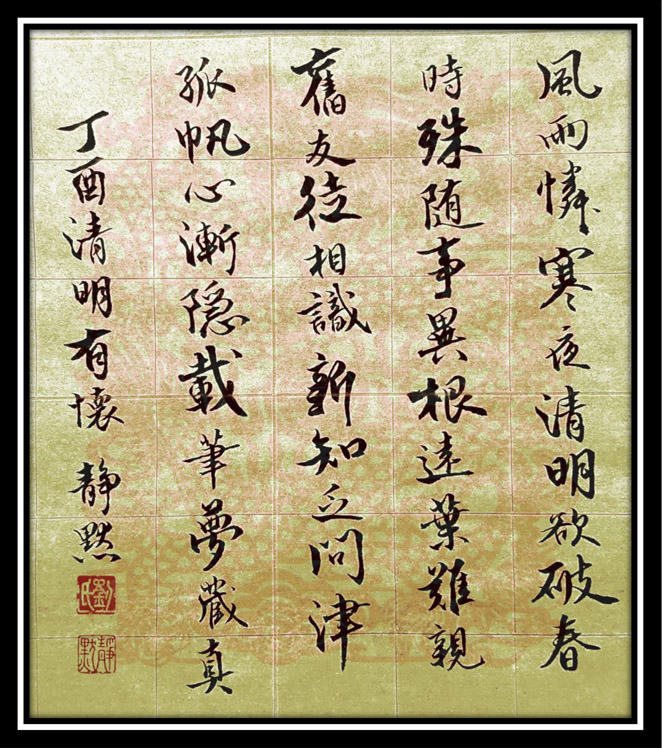 風雨憐寒夜清明欲破春
時殊随事異根遠葉難親
舊友徒相識新知乏問津
孤帆心漸隠載筆夢藏真
丁酉清明有懷 静默
劉氏
静默